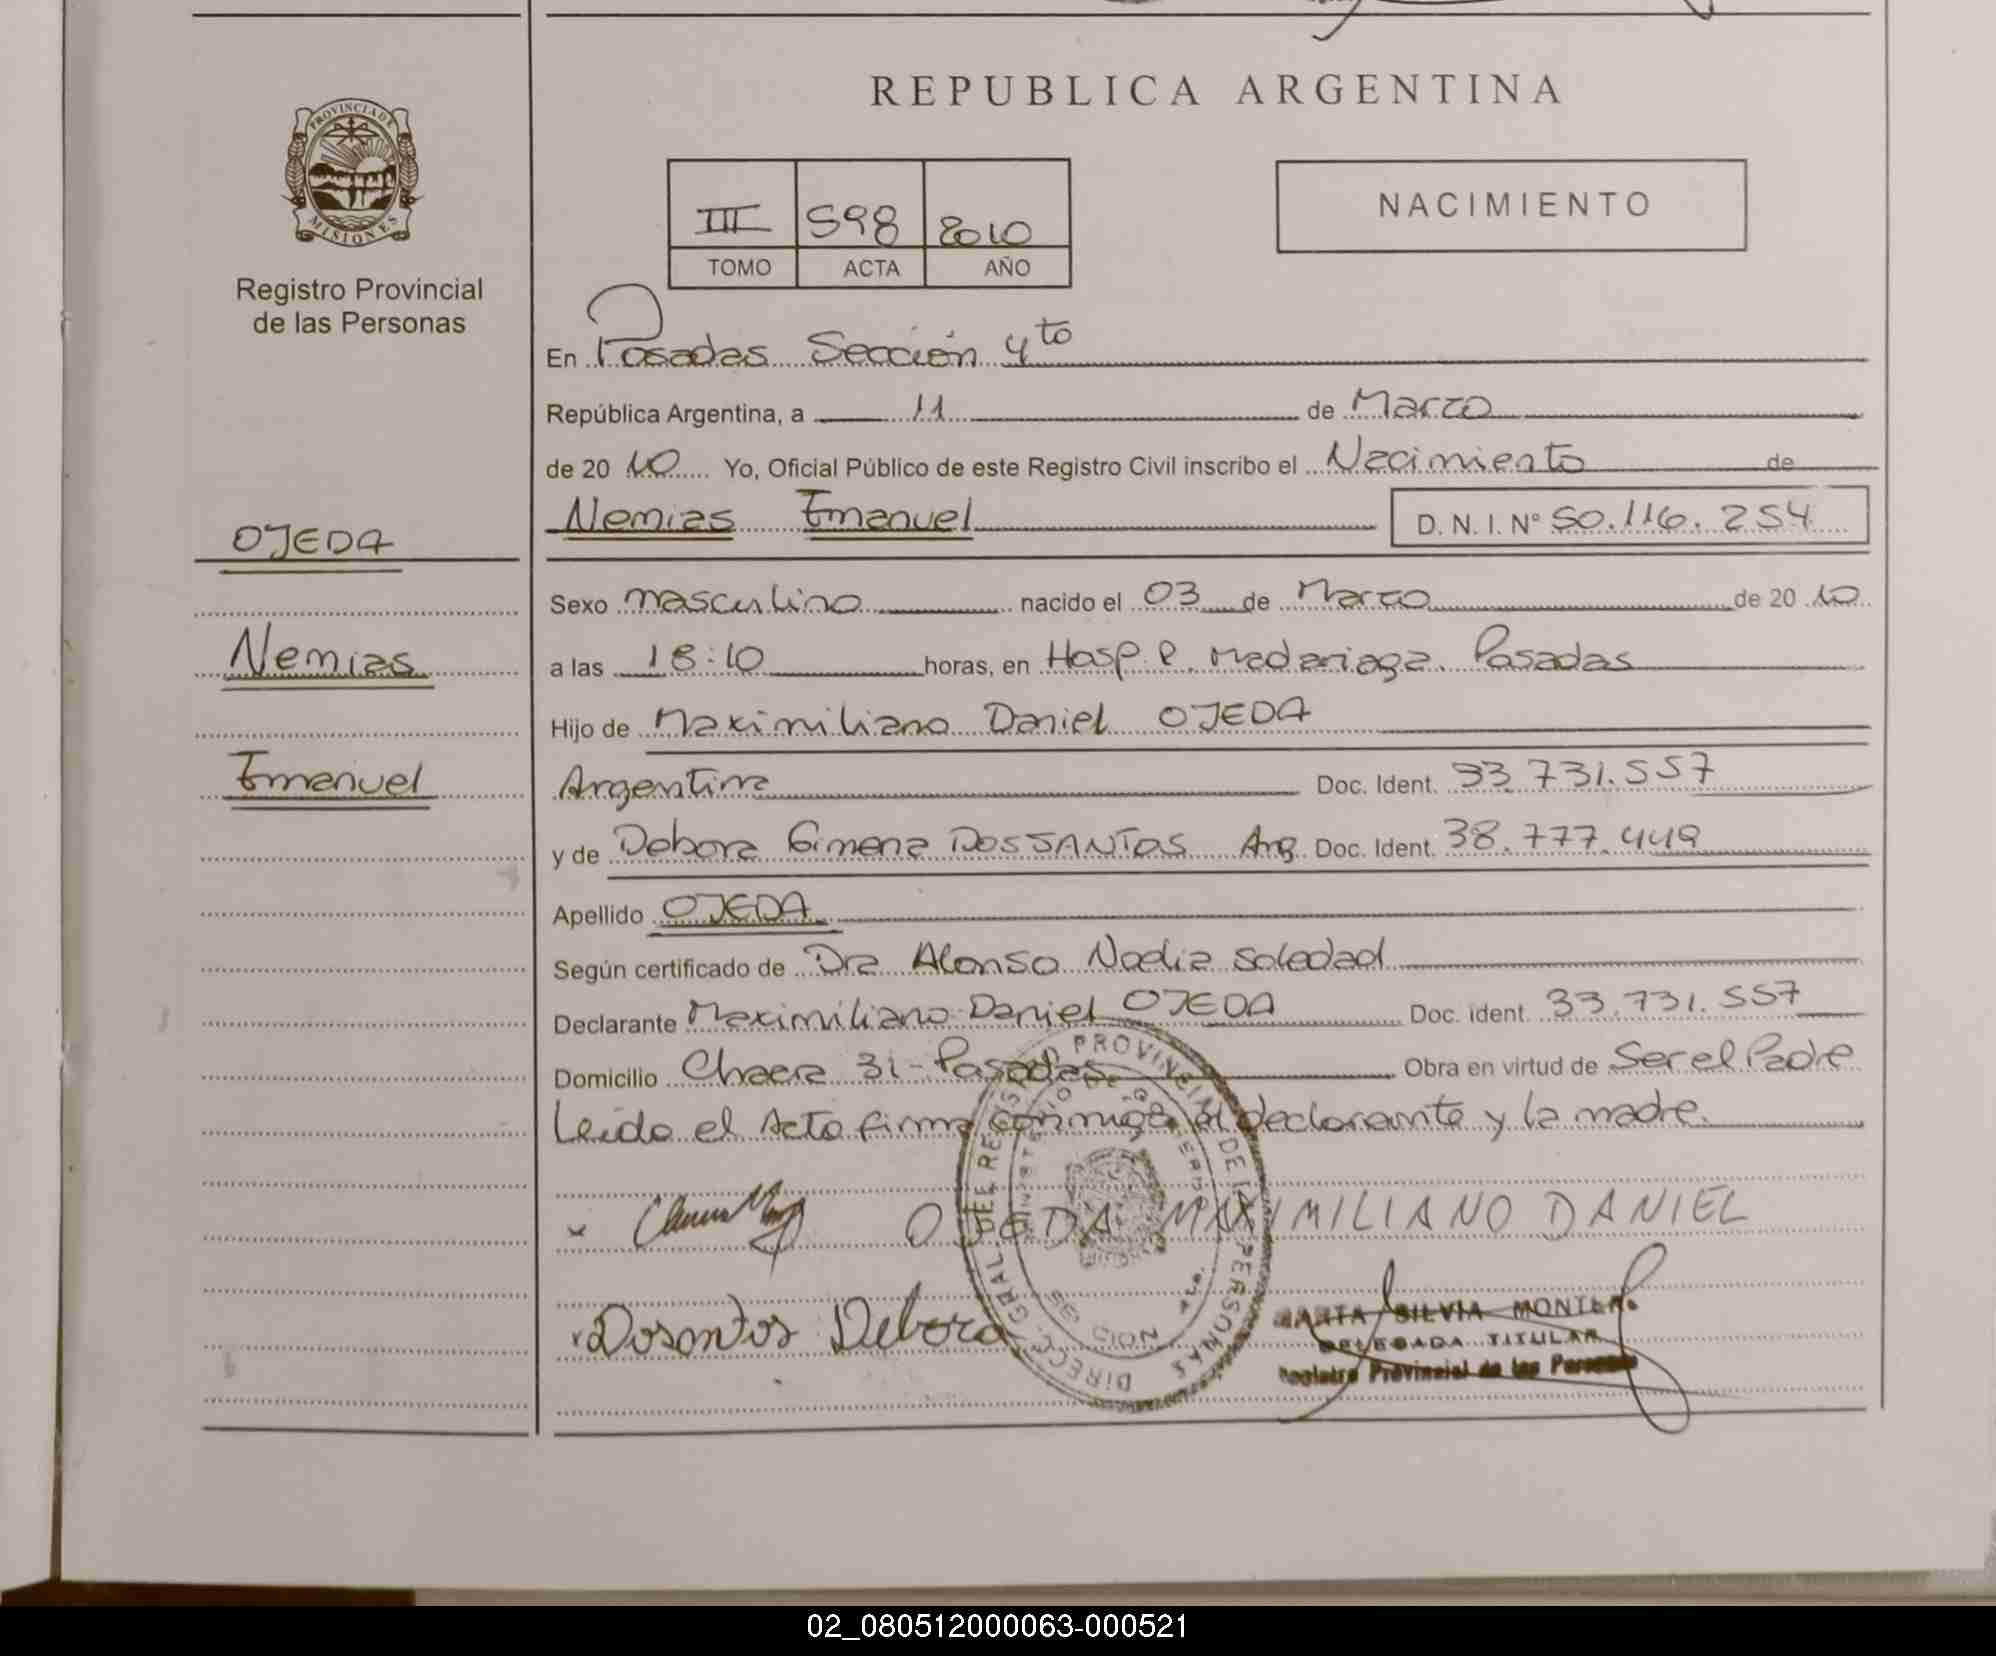 REPUBLICA ARGENTINA
PROVINCIA DE
MISIONES
Registro Provincial
de las Personas
III 598 2010
TOMO ACTA AÑO
NACIMIENTO
En Posadas Sección 4to
República Argentina, a 11 de Marzo
de 20 10 Yo, Oficial Público de este Registro Civil inscribo el Nacimiento de
Nemias Emanuel D. N. I. Nº 50.116.254
OJEDA
Nemias
Emanuel
Sexo masculino nacido el 03 de Marzo de 20 10
a las 18:10 horas, en Hosp. R. Madariaga. Posadas
Hijo de Maximiliano Daniel OJEDA
Argentina Doc. Ident. 33.731.557
y de Debora Gimena DOSSANTOS Arg. Doc. Ident. 38.777.449
Apellido OJEDA
Según certificado de Dra Alonso Nadia Soledad
Declarante Maximiliano Daniel OJEDA Doc. ident. 33.731.557
Domicilio Chacra 31 - Posadas Obra en virtud de Ser el Padre
Leido el Acta firma conmigo el declarante y la madre.
OJEDA MAXIMILIANO DANIEL
Dosantos Debora
DIRECC. GRAL DEL REGISTRO PROVINCIAL DE LAS PERSONAS
MINISTERIO DE GOBIERNO
MARTA SILVIA MONTERO
DELEGADA TITULAR
Registro Provincial de las Personas
02_080512000063-000521